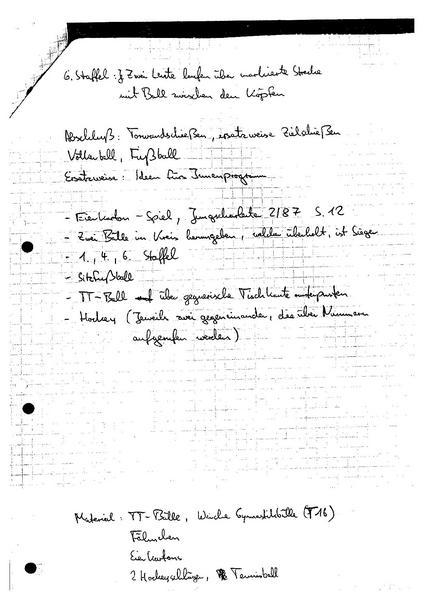 6. Staffel : Zwei Leute laufen über markierte Strecke
mit Ball zwischen den Köpfen
Abschluß: Torwandschießen, ersatzweise Zielschießen
Völkerball, Fußball
Ersatzweise: Ideen fürs Innenprogramm
- Eierkarton-Spiel, Jungscharleiter 2/87 S. 12
- Zwei Bälle im Kreis herumgeben, welche überholt, ist Sieger
- 1., 4., 6. Staffel
- Sitzfußball
- TT-Ball über gegnerische Tischkante pusten
- Hockey (Jeweils zwei gegeneinander, die über Nummern
aufgerufen werden)
Material: TT-Bälle, Weiche Gymnastikbälle (T16)
Fähnchen
Eierkartons
2 Hockeyschläger, Tennisball